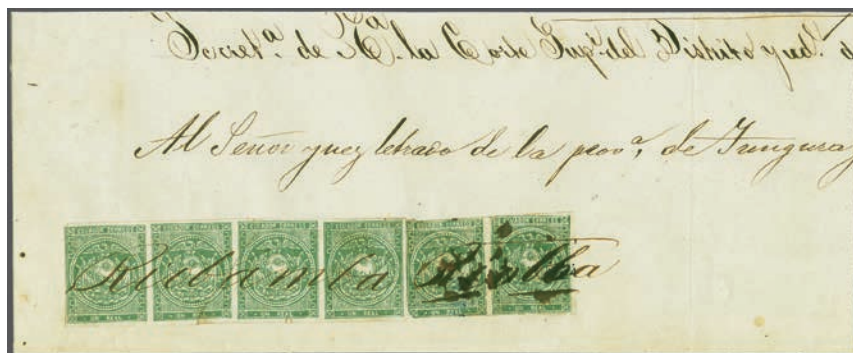 Secret.ª de Cª. la Corte Sup.r del Distrito y ed.
Al Señor juez letrado de la prov.ª, de Tungura
ECUADOR CORREOS
UN REAL
Riobamba